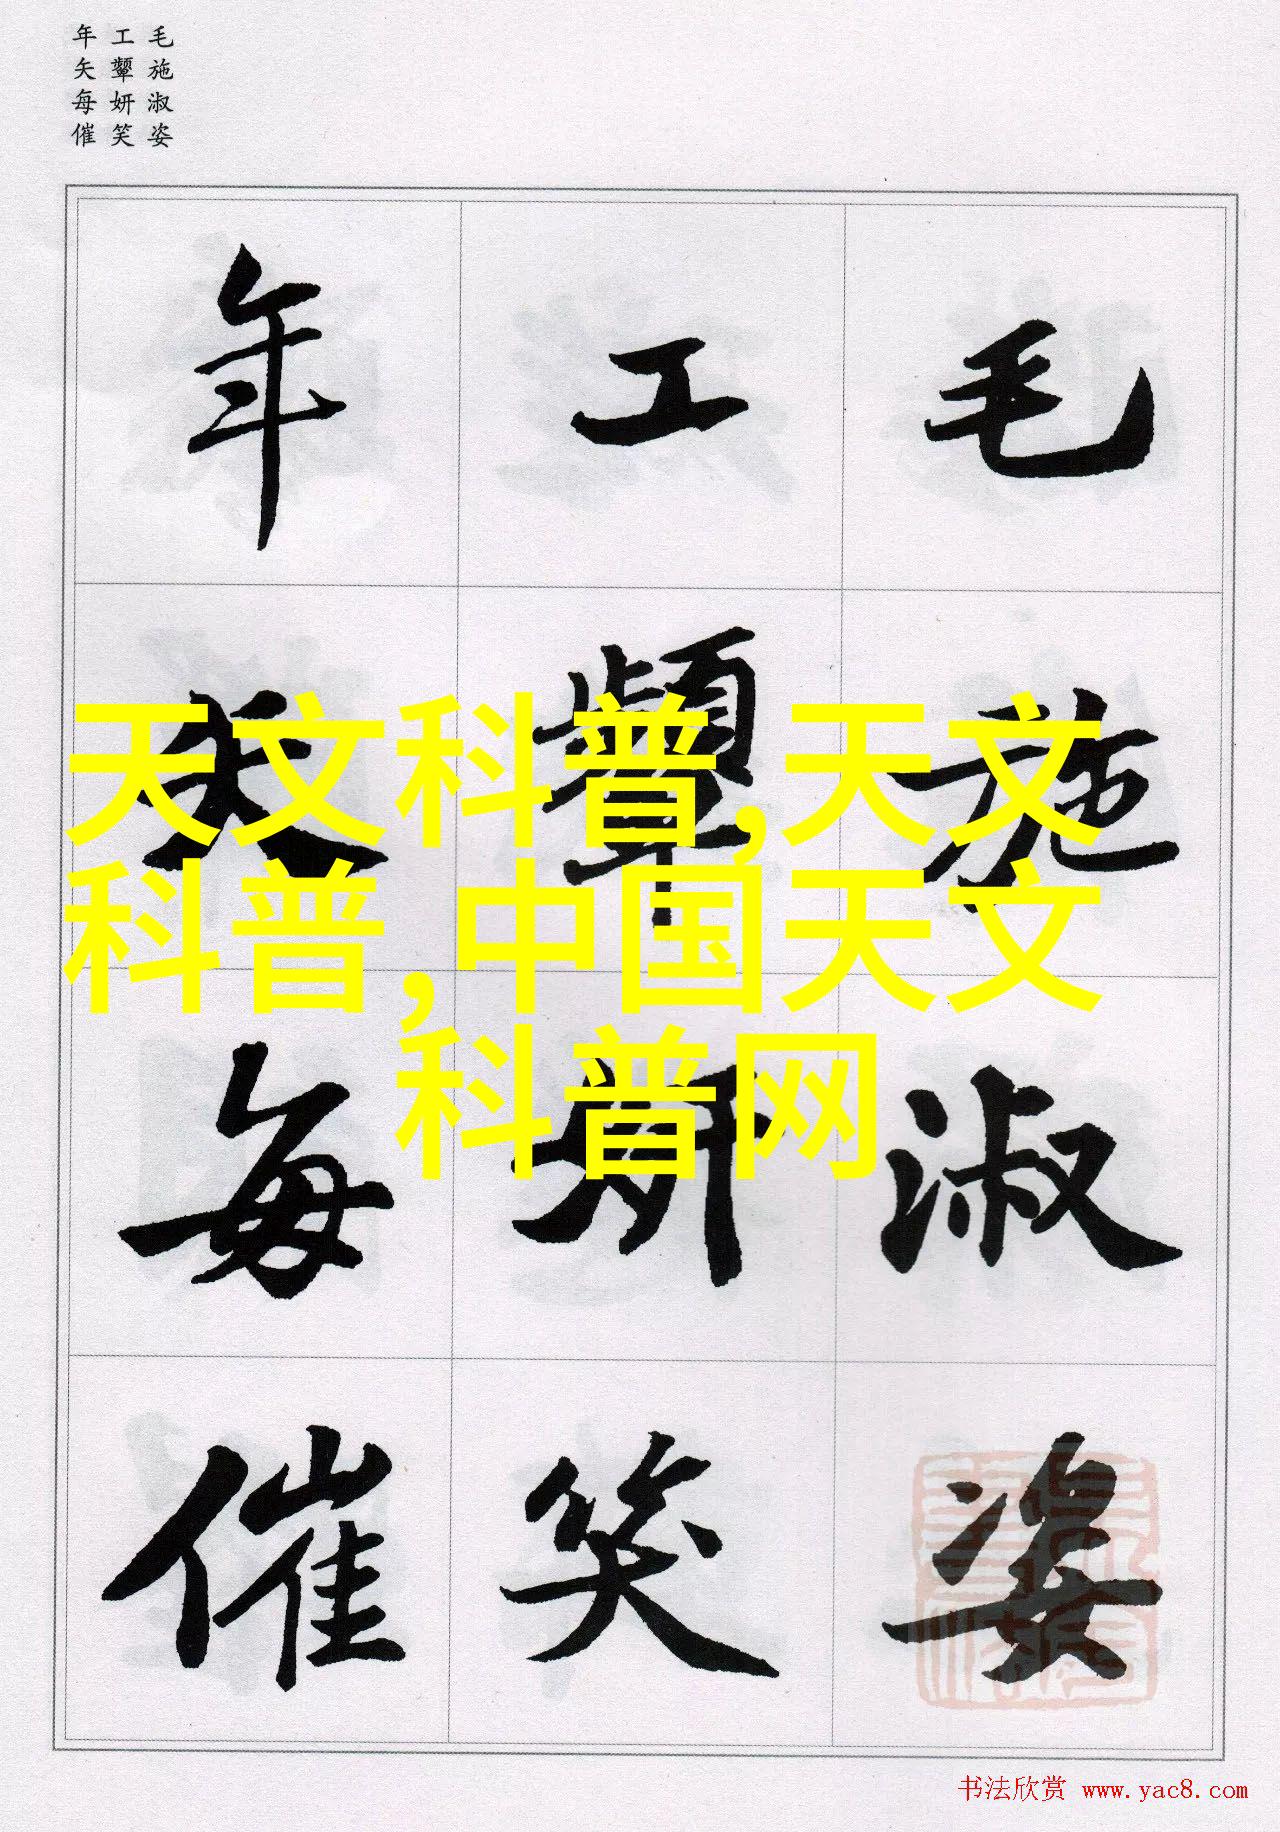 毛施淑姿
工颦妍笑
年矢每催
毛施淑姿
工颦妍笑
年矢每催
天文科普,天文
科普,中国天文
科普网
书法欣赏 www.yac8.com